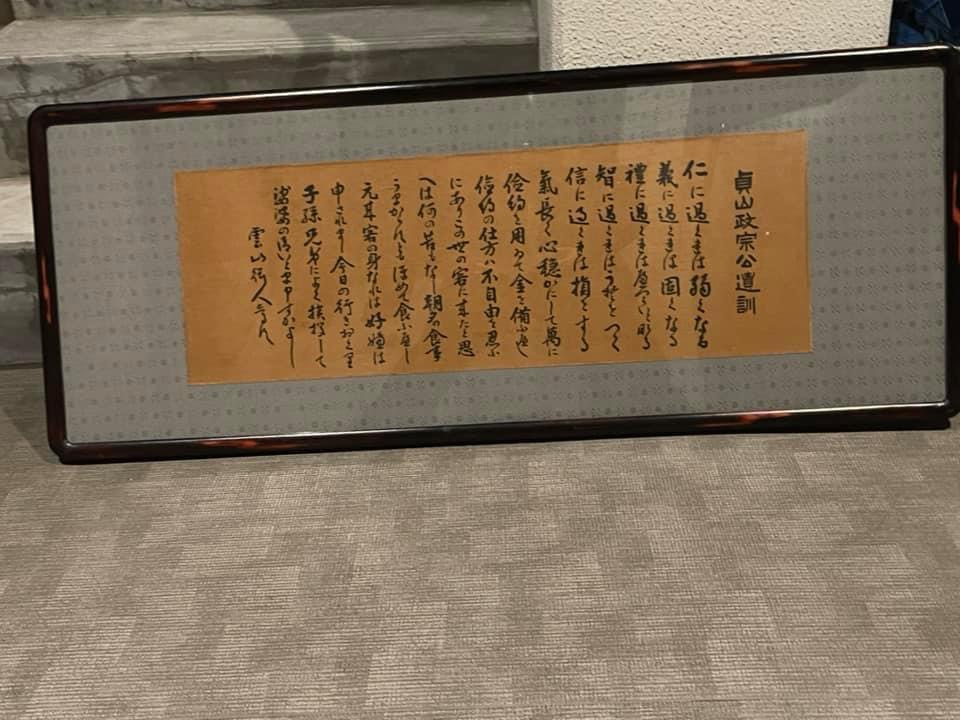 貞山政宗公遺訓
仁に過くれは弱くなる
義に過くれは固くなる
禮に過くれは諂と成る
智に過くれはうそをつく
信に過くれは損をする
氣長く心穏かにして萬に
儉約を用ゐて金を備ふへし
儉約の仕方ハ不自由を忍ふ
にありこの世の客に来たと思
へは何の苦もなし朝夕の食事
うまからすともほめて食ふへし
元来客の身なれは好嫌は
申されまし今日の行をおくり
子孫兄弟によく挨拶して
娑婆の御いとま申すかよし
雲山